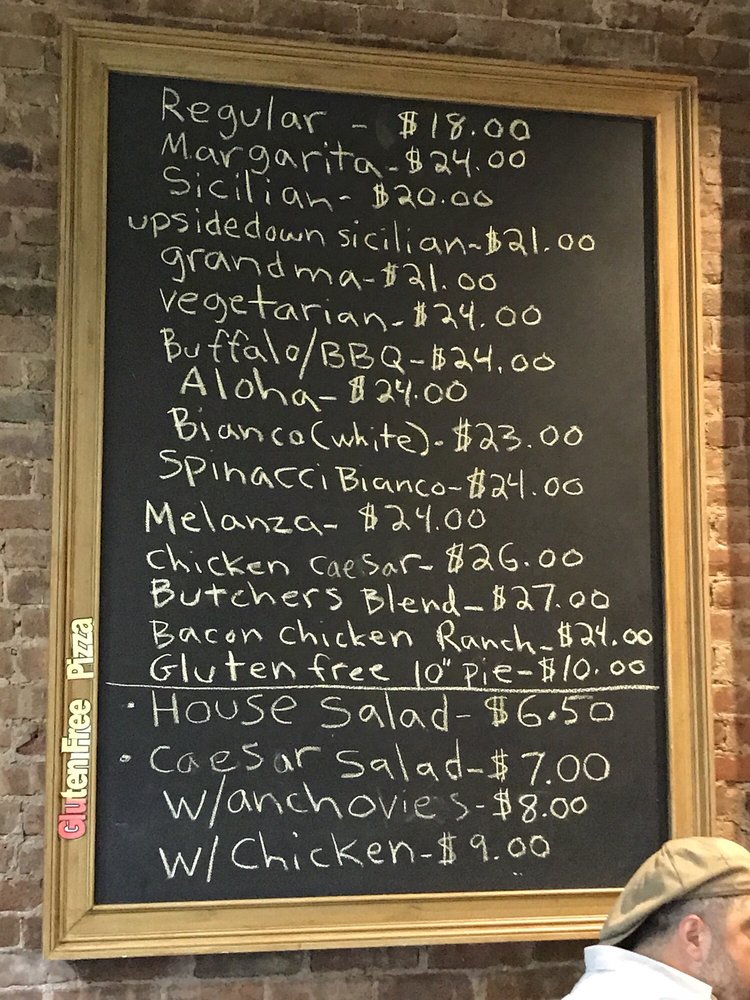 Regular - $18.00
Margarita-$24.00
Sicilian- $20.00
upsidedown sicilian-$21.00
grandma-$21.00
vegetarian-$24.00
Buffalo/BBQ-$24.00
Aloha-$24.00
Bianco(white)-$23.00
Spinacci Bianco-$24.00
Melanza- $24.00
chicken caesar-$26.00
Butchers Blend-$27.00
Bacon chicken Ranch-$24.00
Gluten free 10" pie-$10.00
· House Salad-$6.50
· Caesar Salad-$7.00
w/anchovies-$8.00
w/Chicken-$9.00
Gluten Free Pizza